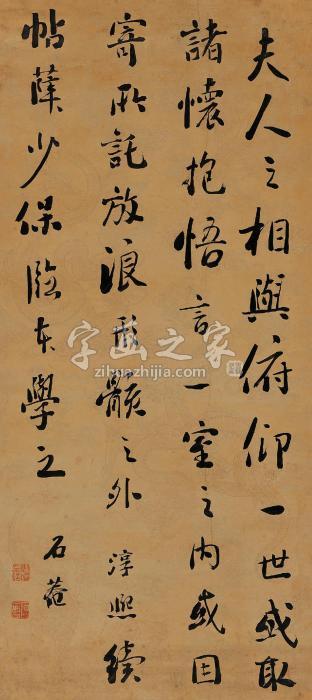 夫人之相與俯仰一世或取
諸懷抱悟言一室之內或因
寄所託放浪形骸之外 淳熙續
帖薛少保臨本學之
石菴
字画之家
zihuazhijia.com